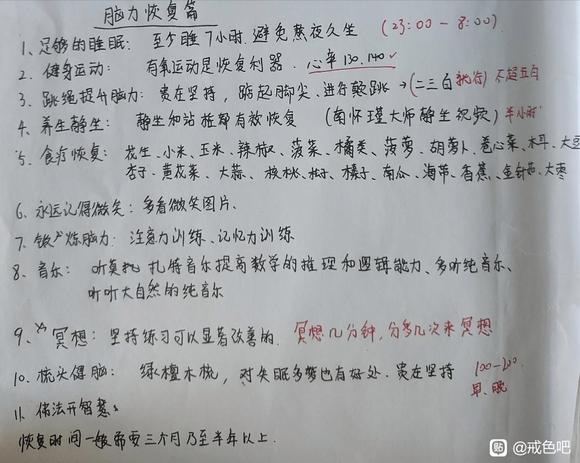 脑力恢复篇
1、足够的睡眠: 至少睡7小时.避免熬夜久坐 (23:00-8:00)
2、健身运动: 有氧运动是恢复利器. 心率130.140✓
3、跳绳提升脑力: 贵在坚持,踮起脚尖、进行颠跳→(二三百执行)不超五百
4、养生静坐: 静坐和站桩都有效恢复 (南怀瑾大师静坐视频)半小时
5、食疗恢复: 花生、小米、玉米、辣椒、菠菜、橘类、菠萝、胡萝卜、卷心菜、木耳、大豆
杏子、黄花菜、大蒜、核桃、松子、榛子、南瓜、海带、香蕉、金针菇、大枣
6、永远记得微笑: 多看微笑图片、
7、锻炼脑力: 注意力训练、记忆力训练
8、音乐: 听莫扎特音乐提高数学的推理和逻辑能力、多听纯音乐、
听听大自然的纯音乐
9、冥想: 坚持练习可以显著改善的. 冥想几分钟,分多几次来冥想
10、梳头健脑: 绿檀木梳,对失眠多梦也有好处.贵在坚持 100-200
早、晚
11、佛法开智慧、
恢复时间一般需要三个月乃至半年以上.
贴 @戒色吧